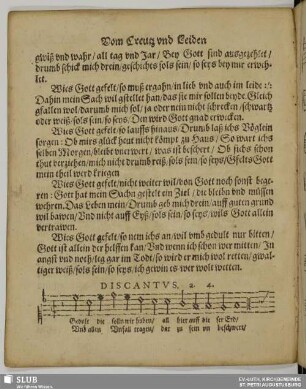 Vom Creutz vnd Leiden
gwiß vnd wahr / all tag vnd Jar / Bey Gott sind ausgezehlet /
drumb schick mich drein / geschichts sols sein / so seys bey mir erweh-
let.
Wies Gott gefelt / so mus ergahn / in lieb vnd auch im leide :/:
Dahin mein Sach wil gstellet han / das sie mir sollen beyde Gleich
gfallen wol / darumb mich sol / ja oder nein nicht schrecken / schwartz
oder weiß / sols sein / so seys / Den wird Gott gnad erwecken.
Wies Gott gefelt / so lauffs hinaus / Drumb laß ichs Vöglein
sorgen : Ob mirs glück heut nicht kömpt zu Haus / So wart ichs
selben Morgen / bleibt vnerwert / was ist beschert / Ob sichs schon
thut verziehen / mich nicht drumb reiß / sols sein / so seys / Gfelts Gott
mein theil werd kriegen
Wies Gott gefelt / nicht weiter wil / von Gott noch sonst bege-
ren : Gott hat mein Sachn gestelt ein Ziel / die bleibn vnd müssen
wehren. Das Leben mein / Drumb geb mich drein / auff guten grund
wil bawen / Vnd nicht auff Eyß / sols sein / so seys / wils Gott allein
vertrawen.
Wies Gott gefelt / so nem ichs an / wil vmb gedult nur bitten /
Gott ist allein der helffen kan / Vnd wenn ich schon wer mitten / In
angst vnd noth / leg gar im Todt / so wird er mich wol retten / gwal-
tiger weiß / sols sein / so seys / ich gewin es wer wöl wetten.
DISCANTVS. a. 4.
Gedult die solln wir haben / all hier auff die ser Erd /
Vnd allen Vnfall tragen / der zu sein vn beschwert /
SLUB
Wir führen Wissen.
EV.-LUTH. KIRCHGEMEINDE
ST. PETRI AUGUSTUSBURG